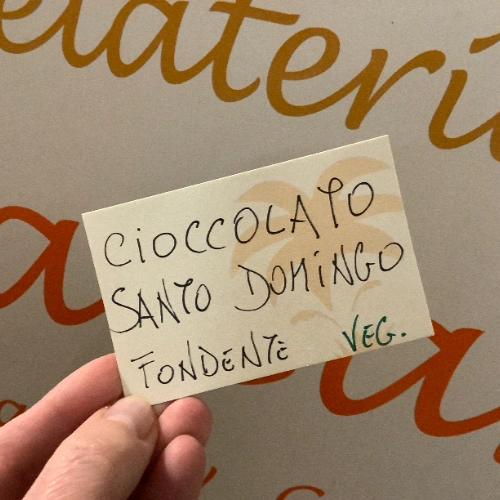 elateri
CiOCCOLATO
SANTO DOMiNGO
FONDENTE VEG.